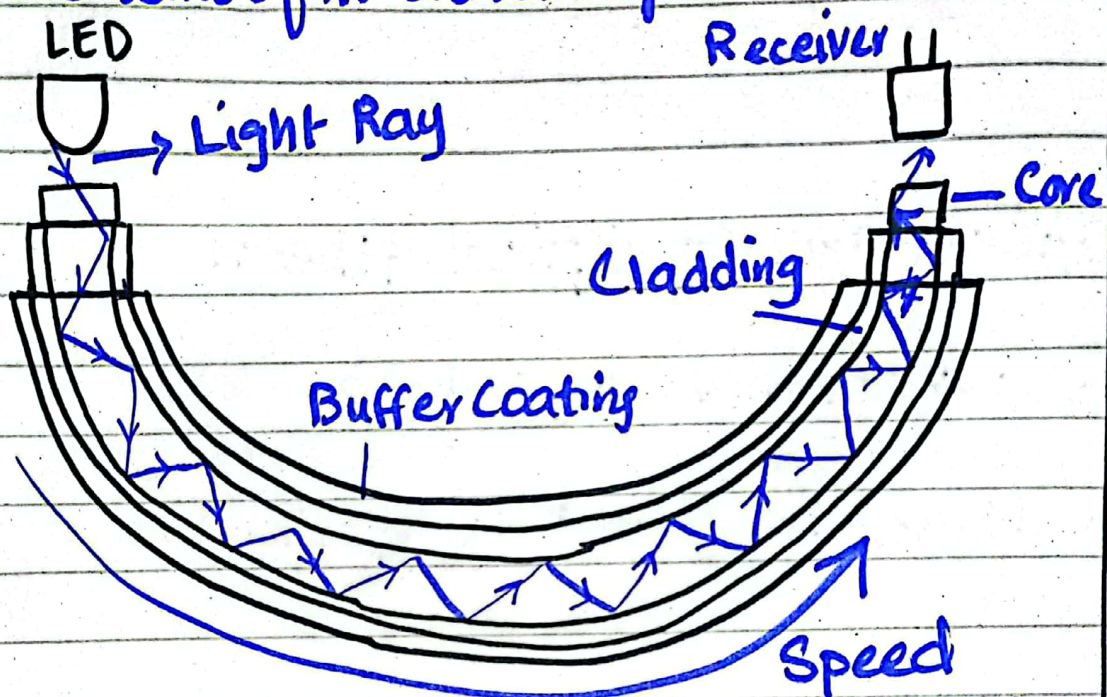 LED
Receiver
Light Ray
Core
Cladding
Buffer Coating
Speed